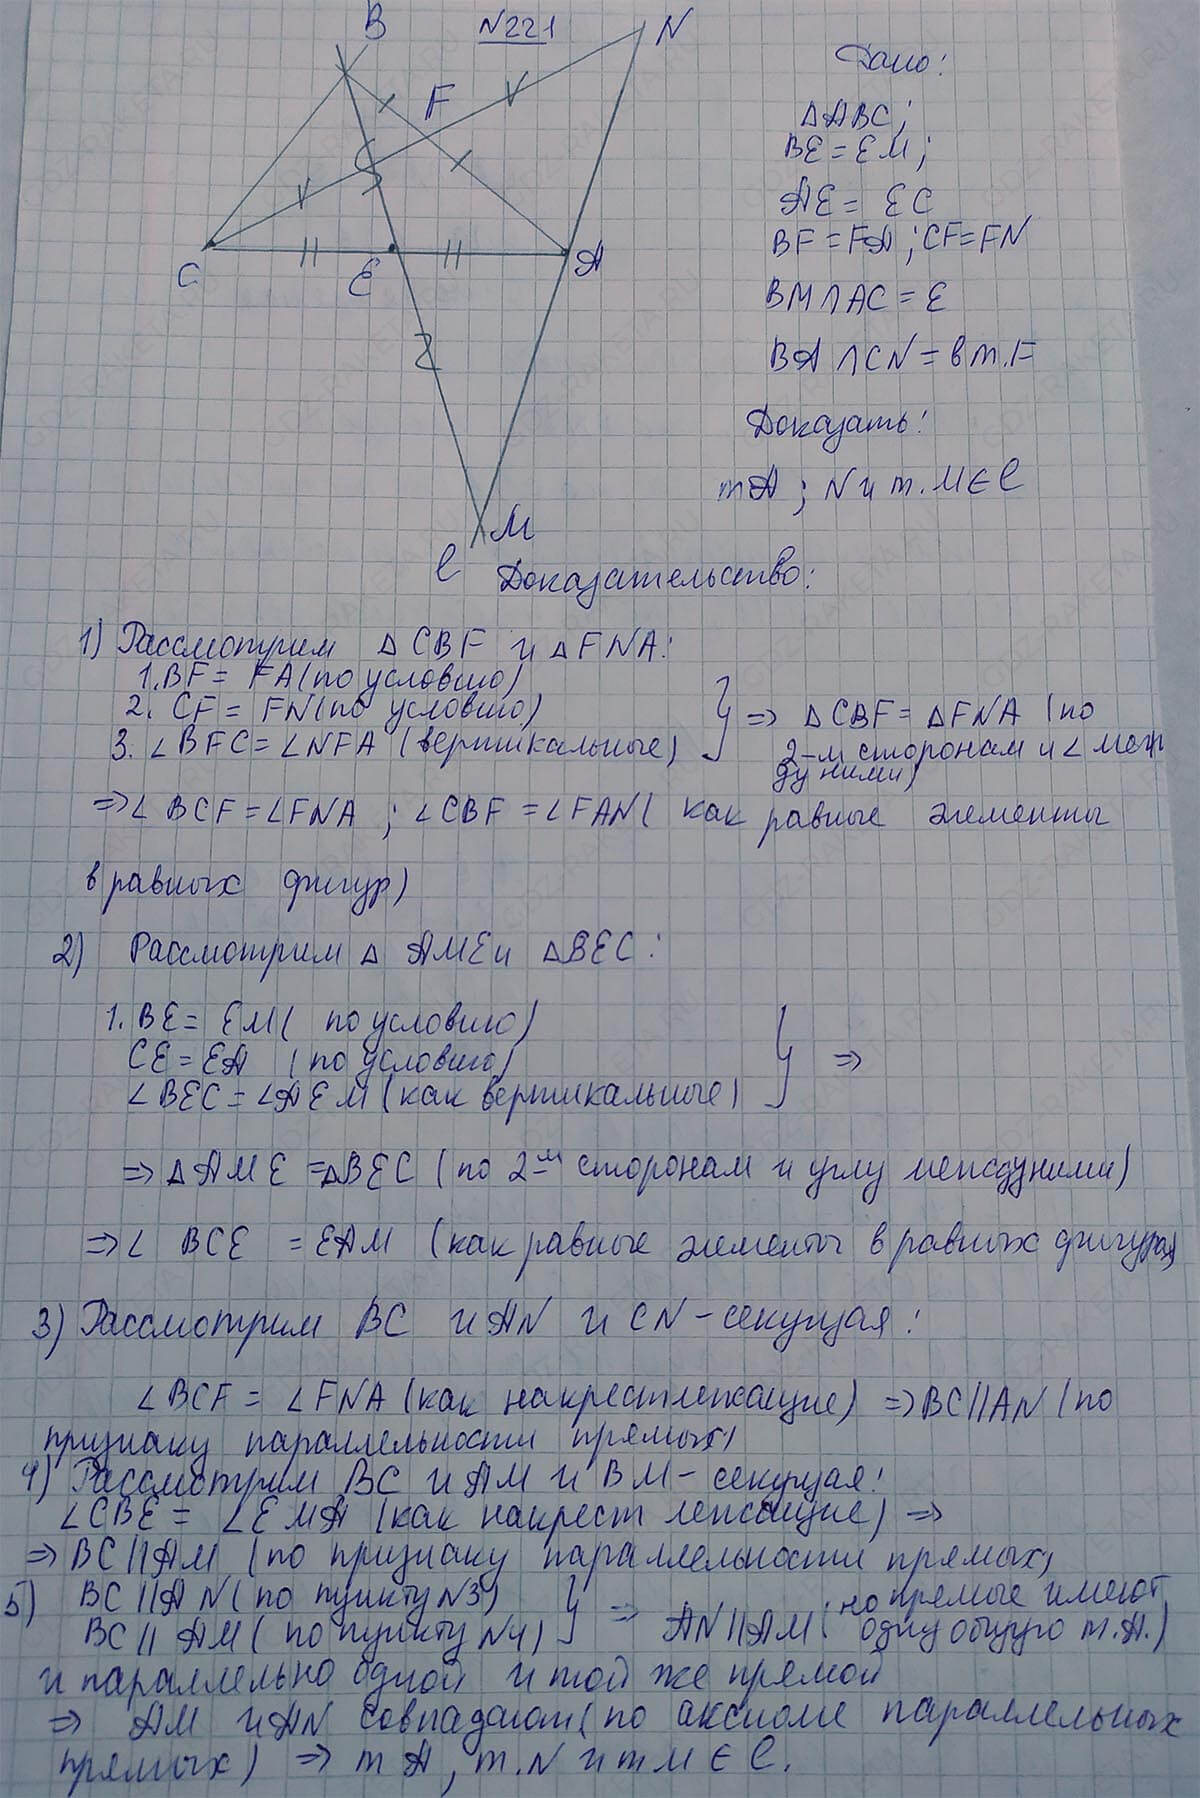 N221
B
N
F
C
E
A
M
l
Дано:
△ABC;
BE = EM;
AE = EC
BF = FA; CF = FN
BM ∩ AC = E
BA ∩ CN = в т. F
Доказать:
т A; N и т. M ∈ l
Доказательство:
1) Рассмотрим △ CBF и △ FNA:
1. BF = FA (по условию)
2. CF = FN (по условию)
3. ∠ BFC = ∠ NFA (вертикальные)
⇒ △ CBF = △FNA (по
2-м сторонам и ∠ меж
ду ними)
⇒ ∠ BCF = ∠FNA ; ∠CBF = ∠FAN ( как равные элементы
в равных фигур)
2) Рассмотрим △ AME и △BEC:
1. BE = EM ( по условию)
CE = EA (по условию)
∠ BEC = ∠AEM (как вертикальные)
⇒
⇒ △ AME = △BEC (по 2-м сторонам и углу между ними)
⇒ ∠ BCE = EAM (как равные элементы в равных фигурах)
3) Рассмотрим BC и AN и CN - секущая:
∠BCF = ∠FNA (как накрестлежащие) ⇒ BC || AN (по
признаку параллельности прямых)
4) Рассмотрим BC и AM и BM - секущая:
∠CBE = ∠EMA (как накрест лежащие) ⇒
⇒ BC || AM (по признаку параллельности прямых)
5) BC || AN (по пункту N3)
BC || AM (по пункту N4)
⇒ AN || AM ( но прямые имеют
одну общую т. A.)
и параллельно одной и той же прямой
⇒ AM и AN совпадают (по аксиоме параллельных
прямых) ⇒ т A, т. N и т M ∈ l.